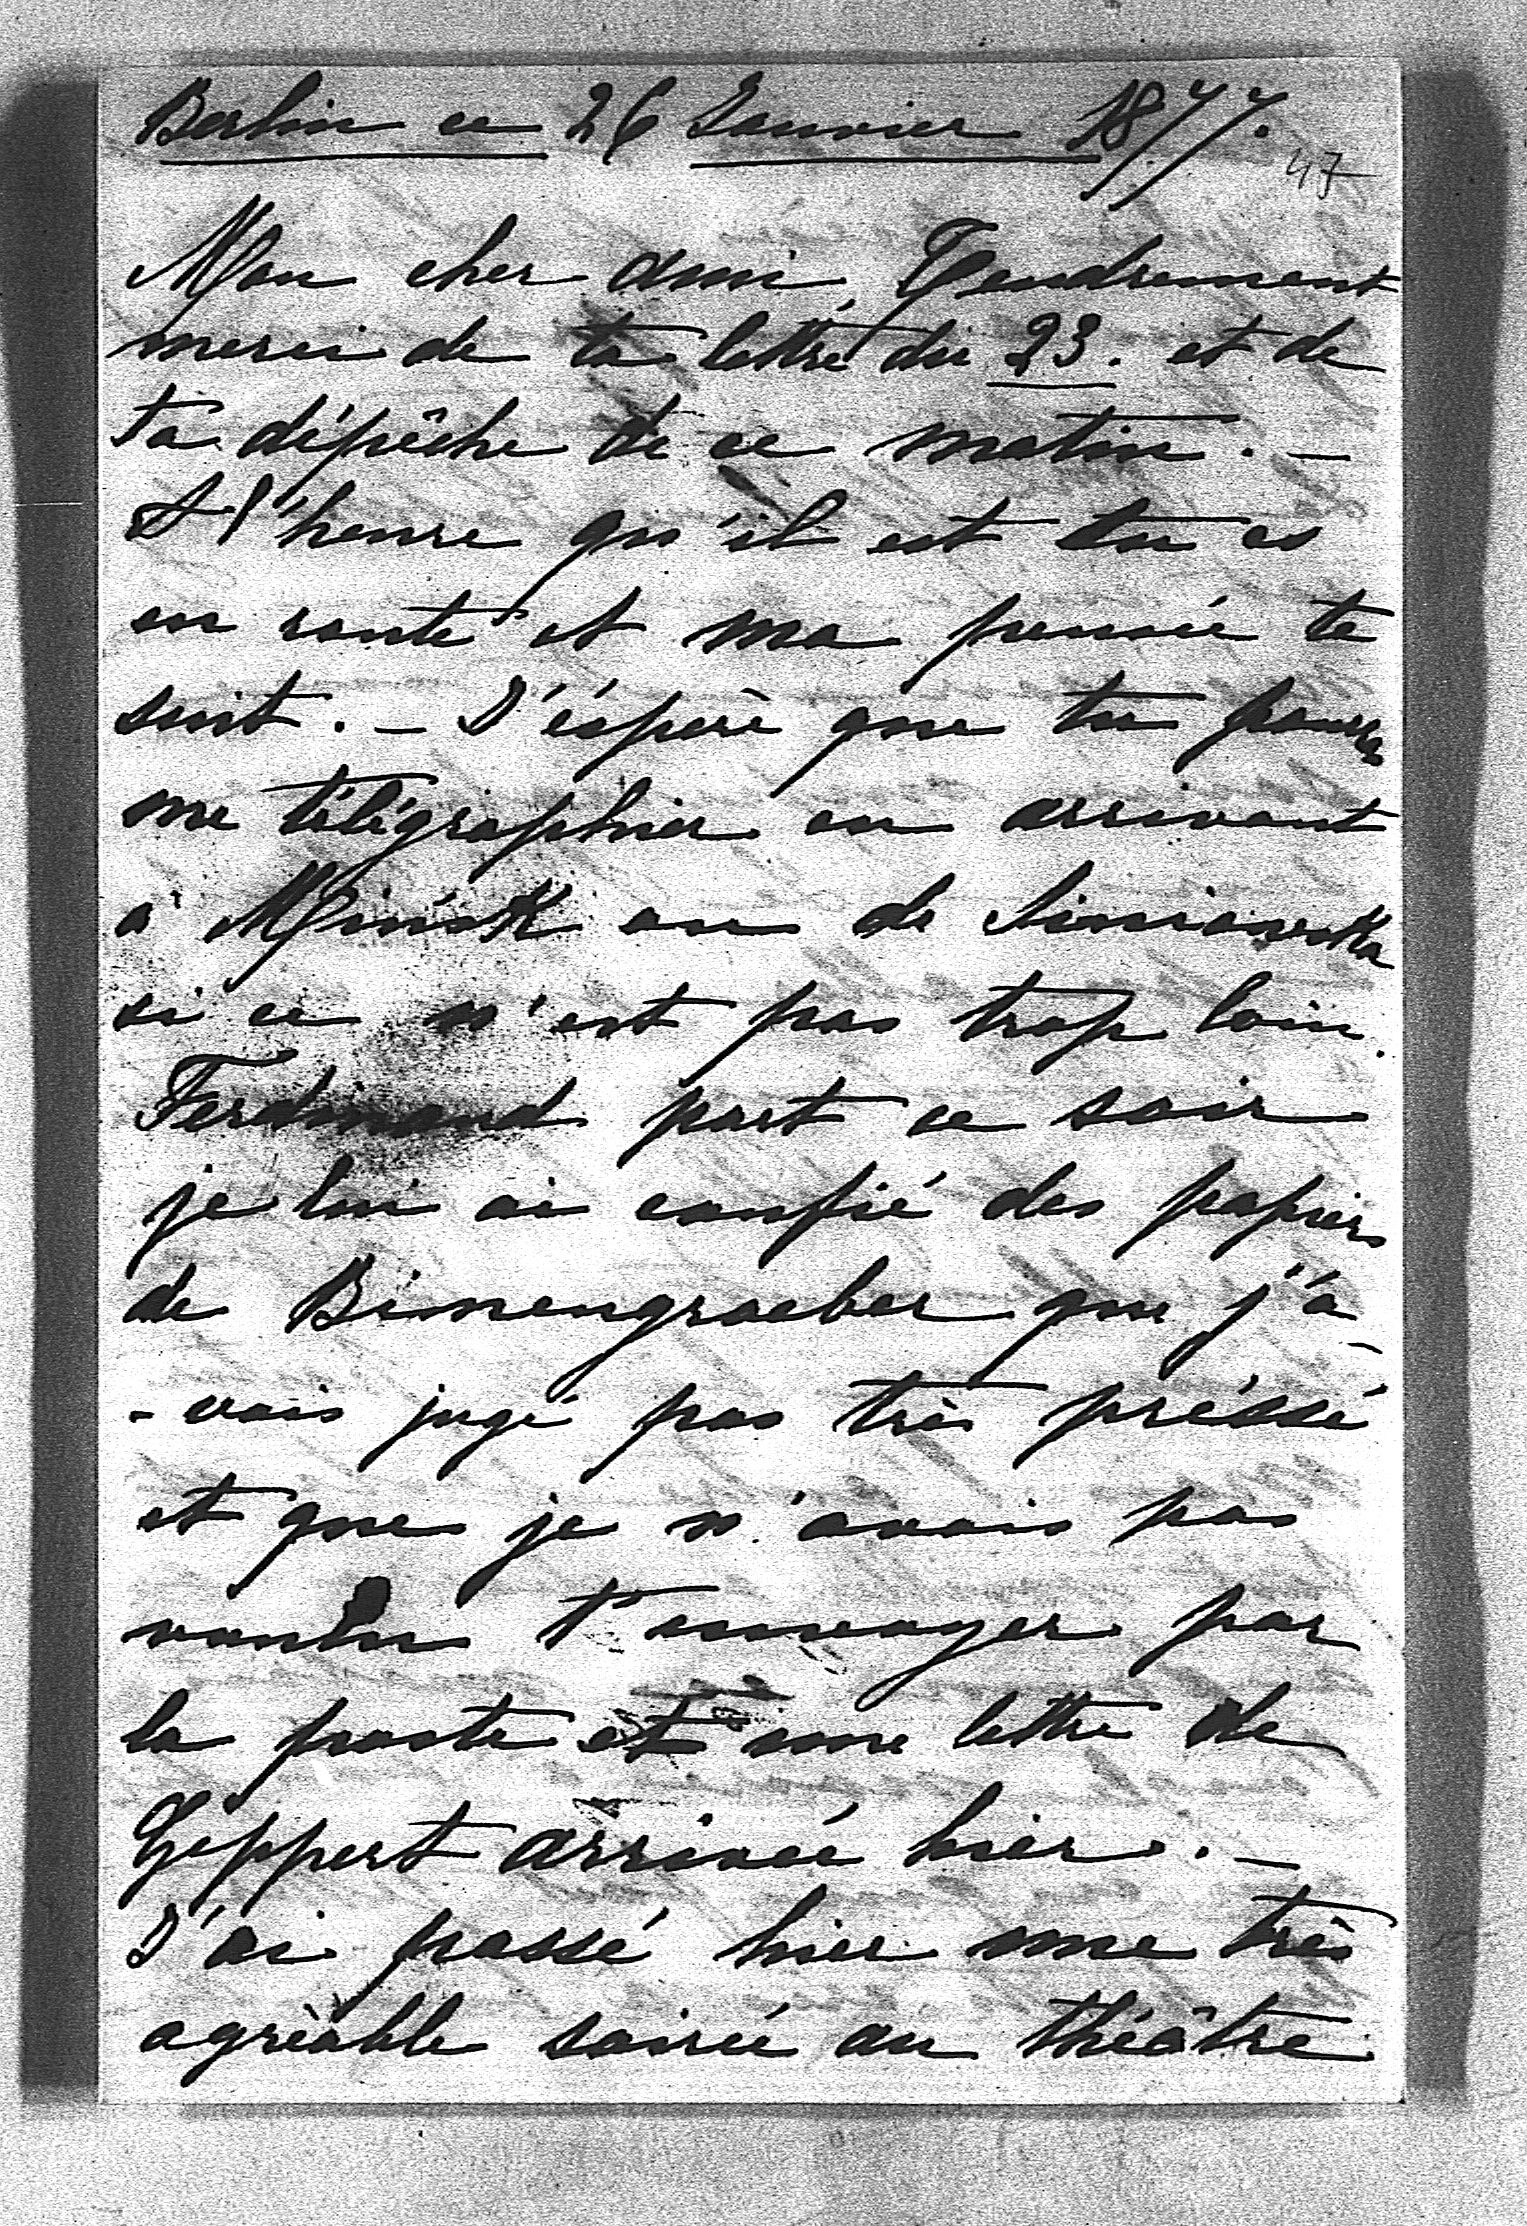 Berlin ce 26 Janvier 1877.
47
Mon cher ami, Tendrement
merci de ta lettre du 23. et de
ta dépêche de ce matin. –
A l'heure qu'il est tu es
en route et ma pensée te
suit. – J'éspère que tu pourras
me télégraphier en arrivant
à Minsk ou de Siniawka
si ce n'est pas trop loin.
Ferdinand part ce soir
je lui ai confié des papiers
de Binengraeber que j'a-
-vais jugé pas très préssé
et que je n'avais pas
voulu t'envoyer par
la poste et une lettre de
Geppert arrivée hier. –
J'ai passé hier une très
agréable soirée au théâtre